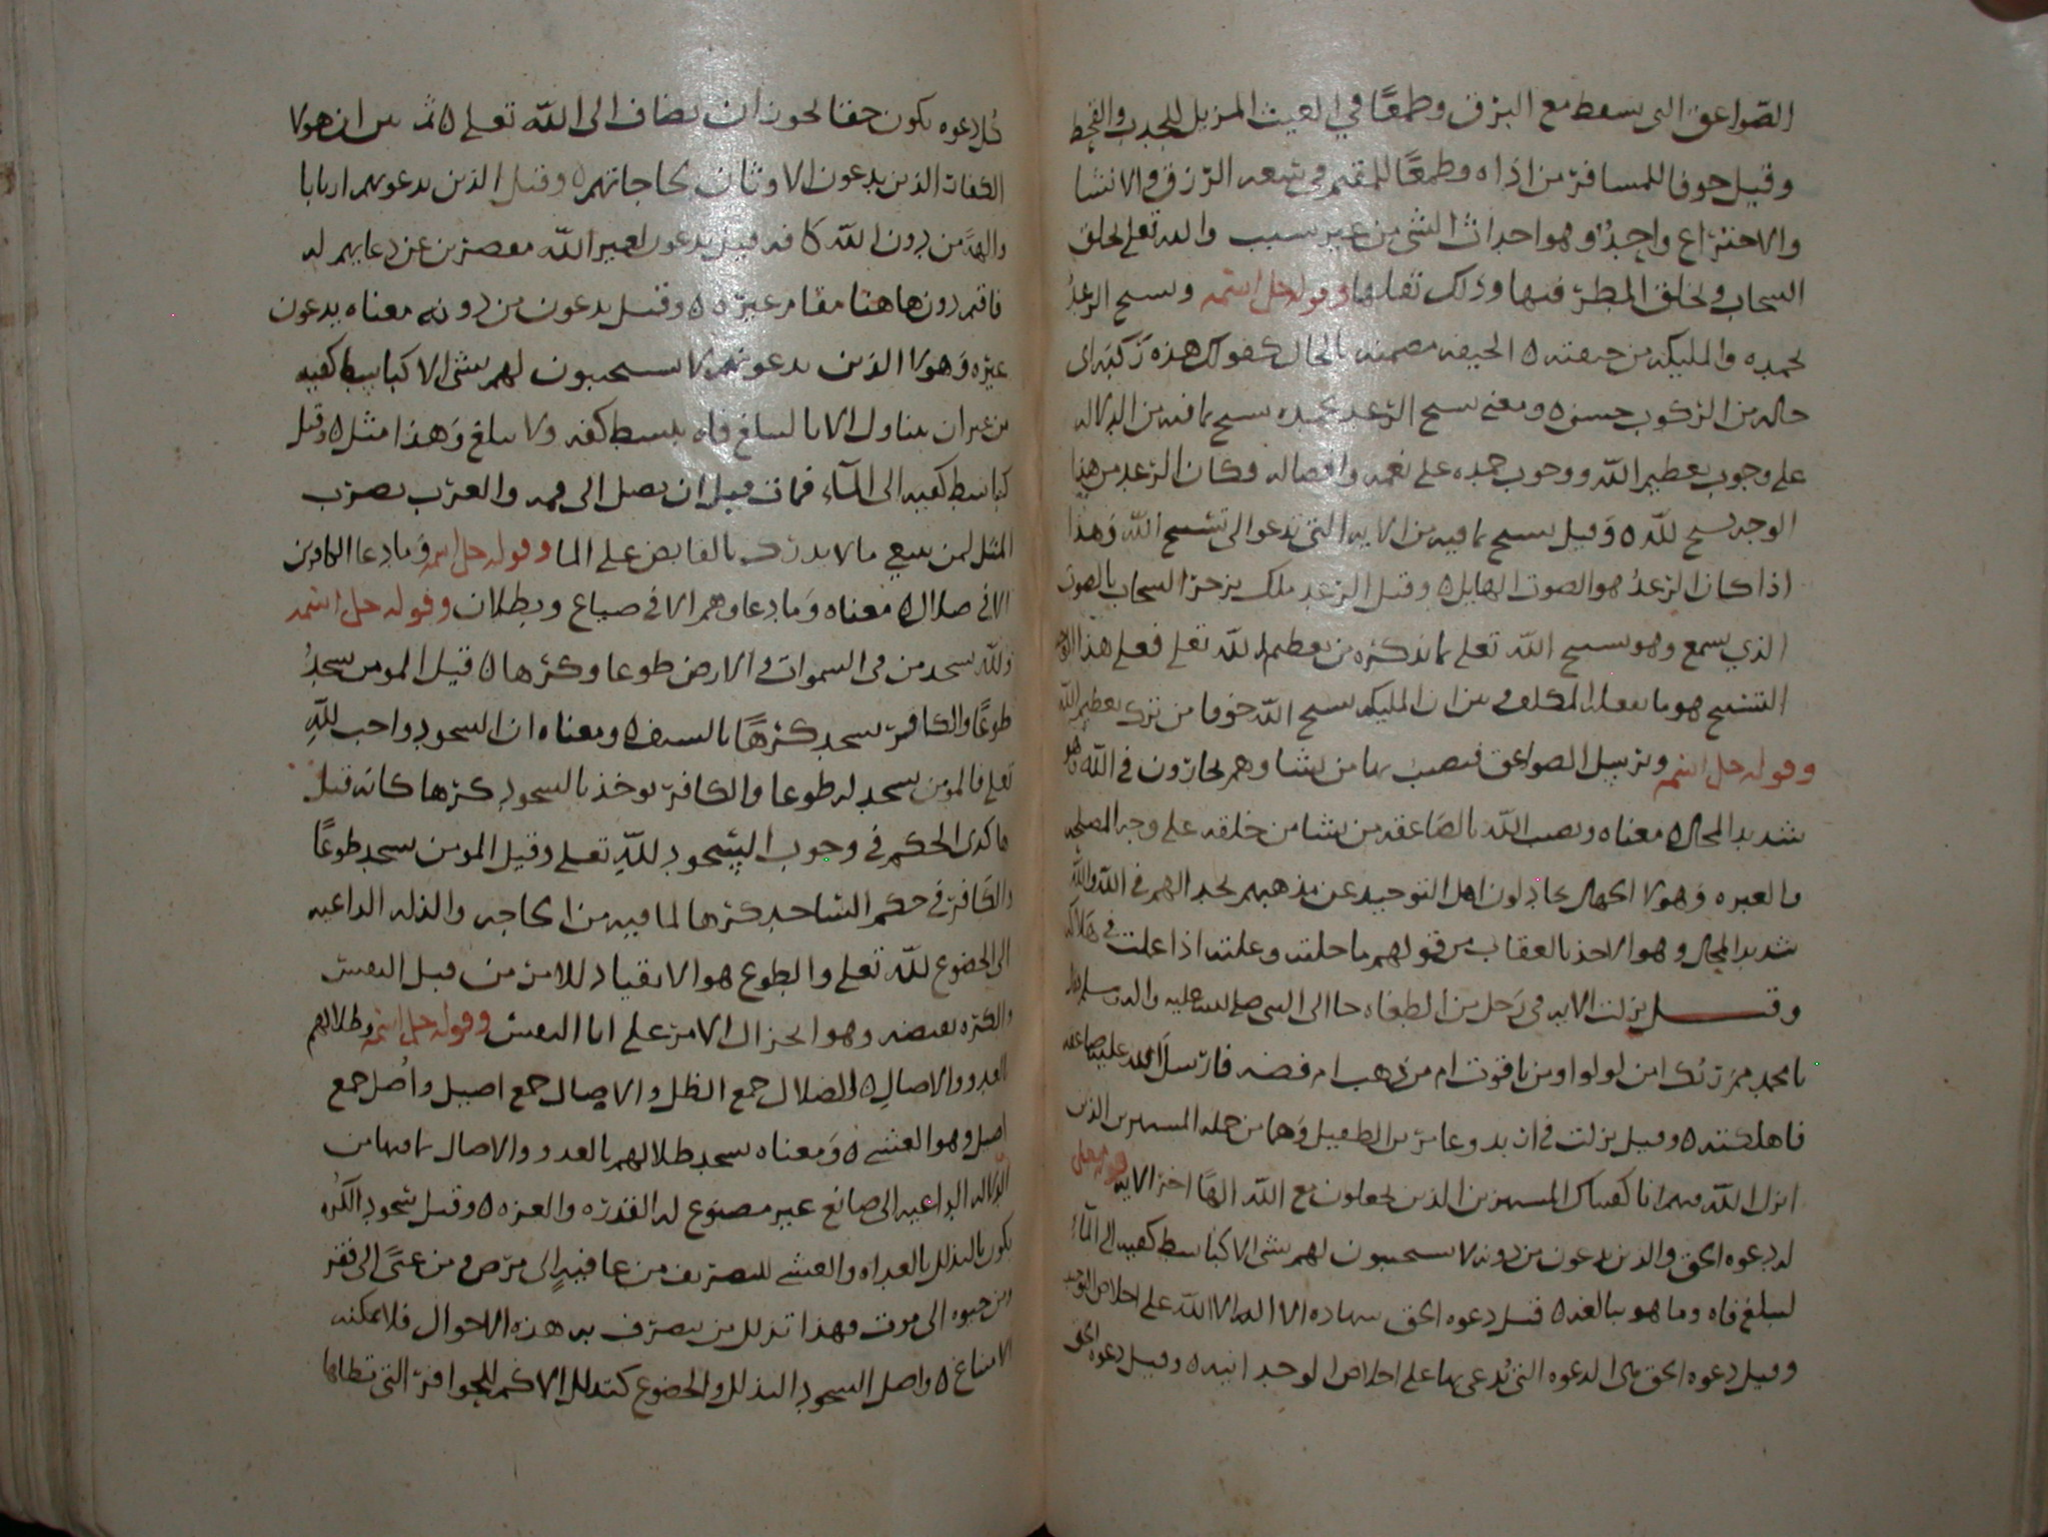 الصواعق التى تسقط مع البرق وطمعًا في الغيث المزيل للجدب والقحط
وقيل خوفا للمسافر من اذاه وطمعًا للمقيم في سعه الرزق والانشا
والاختراع واحدٌ وهو احداث الشي من غير سبب والله تعلى يخلق
السحاب ويخلق المطر فيها وذلك ثقلها وقوله جل اسمه ويسبح الرعدُ
بحمده والمليكه من خيفته ٥ الخيفه مضمنه بالحال كقولك هذه ركبه اى
حاله من الركوب حسنه ٥ ومعنى يسبح الرعد بحمده يسبح بما فيه من الدلاله
على وجوب تعظيم الله ووجوب حمده على نعمه وافضاله فكان الرعد من هذا
الوجه يسبح لله ٥ وقيل يسبح بما فيه من الايه التى تدعو الى تسبيح الله وهذا
اذا كان الرعدُ هو الصوت الهايل ٥ وقيل الرعد ملك يزجر السحاب بالصوت
الذي يسمع وهو يسبح الله تعلى بما يذكره من تعظيم الله تعلى فعلى هذا الوجه
التسبيح هو ما يفعله المكلف وبين ان المليكه تسبح الله خوفا من ترك تعظيم الله
وقوله جل اسمه ويرسل الصواعق فيصيب بها من يشا وهم يجادلون في الله وهو
شديد المحال ٥ معناه ويصيب الله بالصاعقه من يشا من خلقه على وجه المصلحه
والعبره وهولا الجهال يجادلون اهل التوحيد عن مذهبهم بجدالهم في الله والله
شديد المحال وهو الاخذ بالعقاب من قولهم ماحلته وعلته اذا علت في هلاكه
وقيل نزلت الايه في رجل من الطغاه جا الى النبي صلى الله عليه واله وسلم فقال
يا محمد مم ربك امن لولو او من ياقوت ام من ذهب ام فضه فارسل الله عليه صاعقه
فاهلكته ٥ وقيل نزلت في اربد وعامر بن الطفيل وهما من جمله المستهزين الذين
انزل الله فيهم انا كفيناك المستهزين الذين يجعلون مع الله الهًا اخر الايه قوله تعلى
له دعوه الحق والذين يدعون من دونه لا يستجيبون لهم بشى الا كباسط كفيه الى المآء
ليبلغ فاه وما هو ببالغه ٥ قيل دعوه الحق شهاده الا اله الا الله على اخلاص التوحيد
وقيل دعوه الحق هى الدعوه التى يُدعى بها على اخلاص الوحدانيه ٥ وقيل دعوه الحق
كُل دعوه يكون حقا يجوز ان يضاف الى الله تعلى ٥ ثم بين ان هولا
الكفار الذين يدعون الاوثان لحاجاتهم ٥ وقيل الذين يدعونهم اربابا
والهةً من دون الله كافه قيل يدعون لغير الله مقصرين عن دعايهم له
فاقيم دون هاهنا مقام غيره ٥ وقيل يدعون من دونه معناه يدعون
غيره وهولا الذين يدعونهم لا يستجيبون لهم بشى الا كباسط كفيه
من غير ان يتناول الانا ليبلغ فاه ببسط كفه ولا يبلغ وهذا مثل ٥ وقيل
كباسط كفيه الى المآء فمات قبل ان يصل الى فمه والعرب تضرب
المثل لمن يسعى ما لا يدركه بالقابض على الما وقوله جل اسمه وما دعا الكافرين
الا في ضلال ٥ معناه وما دعاوهم الا في ضياع وبطلان وقوله جل اسمه
ولله يسجد من في السموات والارض طوعا وكرها ٥ قيل المومن يسجدُ
طوعًا والكافر يسجد كرهًا بالسيف ٥ ومعناه ان السجود واجب للهِ
تعلى فالمومن يسجد له طوعا والكافر يوخذ بالسجود كرها كانه قيل
ما كدى الحكم في وجوب السجود للهِ تعلى وقيل المومن يسجد طوعًا
والكافر في حكم الساجد كرها لما فيه من الحاجه والذله الداعيه
الى الخضوع لله تعلى والطوع هو الانقياد للامر من قبل النفس
والكره نقيضه وهو الجر الى الامر على ابا النفس وقوله جل اسمه وظلالهم
بالغدو والاصال ٥ الظلال جمع الظل والاصال جمع اصيل واُصل جمع
اصيل وهو العشى ٥ ومعناه يسجد ظلالهم بالغدو والاصال بما فيها من
الدلاله الداعيه الى صانع غير مصنوع له القدره والعزه ٥ وقيل سجود الكُره
يكون بالتذلل بالغداه والعشى للتصريف من عافيهٍ الى مرض ومن غنًى الى فقر
ومن حيوه الى موت فهذا تذلل من يتصرف به هذه الاحوال فلا يمكنه
الامتناع ٥ واصل السجود التذلل والخضوع كتذلل الاكم للحوافر التى تطاها